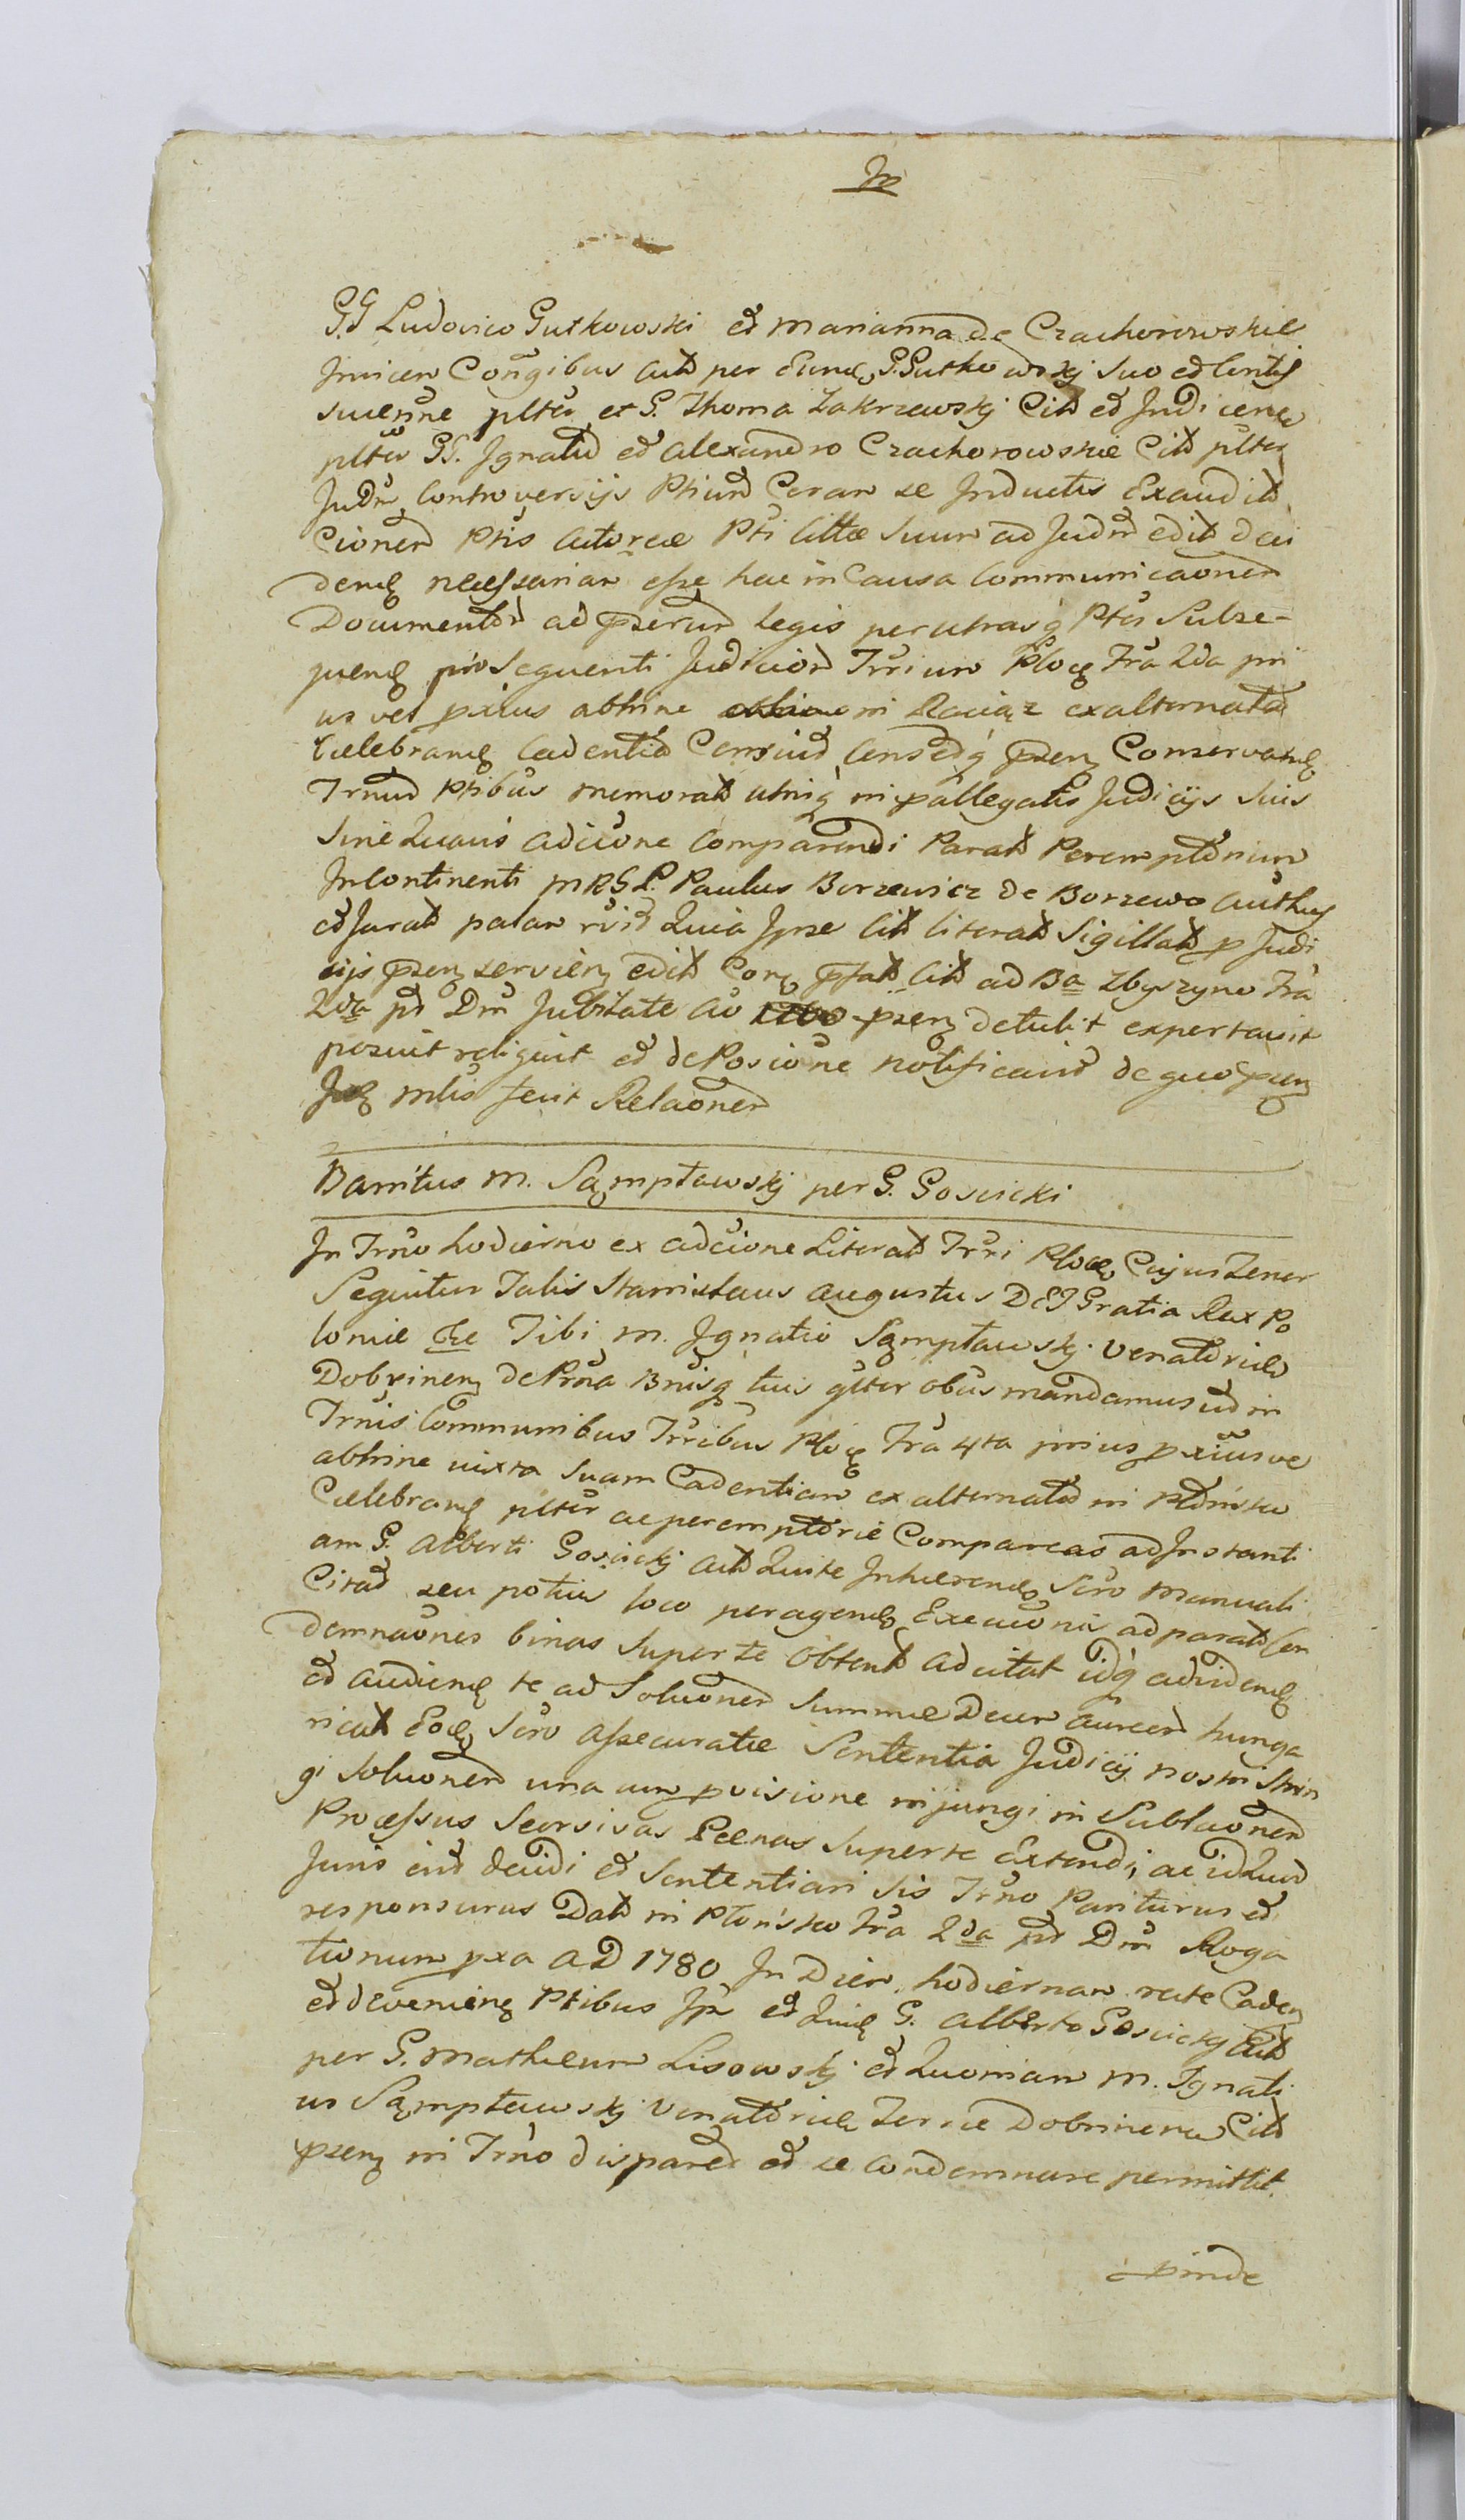 GG Ludovico Gutkowski et Marianna de Czachorowskie
Invicem Congibus Actt per Eund G. Gutkowskj suo et Contis
suenne plter et G. Thoma Zakrzewskj Citt et Indicenq
plter GG. Ignatio et Alexandro Czachorowskie Citt plter
Judm Controversijs Ptium Coram se Inductis Exaudit
Cionem Ptis Actoreæ Pti Cittæ Suum ad Judm edit deci
dend necessariam esse hac in Causa Communicaonem
Documentor ad pserum Legis per utrasq Ptes Subse-
quend pro Sequenti Judicior Trrium Ploc Fra 2da pri
us vel pxius abhinc in Raciąz exalternata
Celebrand Cadentia Censuit Censetq psen Conservand
Trnum Ptibus memorat utriq in pallegatis Judicijs suis
sine Quavis adcione Comparendi Parat Peremptorium
Incontinenti M RGD. Paulus Borzewicz de Borzewo Authus
et Jurat palam rvit Quia Ipse Citt literat Sigillat p Judi
cijs psen servien edit Corq pfat Citt ad Ba Zbyszyno Fra
2da pt Dm Jubilate Ao psen detulit exportavit
posuit reliquit et de Posicione notificavit de quo psen
Jud mlis fecit Relaonem
Bannitus M. Sąmpławskj per G. Goscicki
In Trno hodierno ex adcione Literat Trri Ploce Cujus Tenor
Sequitur Talis Stanislaus Augustus DEI Gratia Rex Po
loniæ &c Tibi M. Ignatio Sąmpławskj Venatoridæ
Dobrinen de Prna Bnisq tuis glter obus mandamus ut in
Trnis Communibus Trribus Ploc Fra 4ta prius pxiusve
abhinc iuxta suam Cadentiam ex alternata in Płońsko
Celebrand plter ac peremptorie Compareas ad Instanti
am G. Alberti Goscickj Actt Qui te Inhærend Scro Manuali
Citat seu potius loco peragend Execuonis ad parat Con
demnaones binas super te Obtent ad citat idq advidend
et audiend te ad Soluonem Summæ Decem aureor hunga
rical Eode Scro Assecuratæ Sententia Judicij nostri Strin
gi Soluonem una cum pvisione injungi in Subluonem
Processus Seorsivas Pœnas super te Extendi, ac id Quod
Juris erit decidi et Sententiari Sis Trno Pariturus et
responsurus Datt in Płońsko Fra 2da pt Dm Roga
tionum pxa AD 1780 In Diem hodiernam recte Caden
et devenienq Ptibus Ips et Quid G. Alberto Goscickj Actt
per G. Mathæum Lisowskj et Quoniam M. Ignati
us Sąmpławskj Venatoridæ Terræ Dobrinens Citt
psen in Trno disparet et se Condemnare permittit
pinde